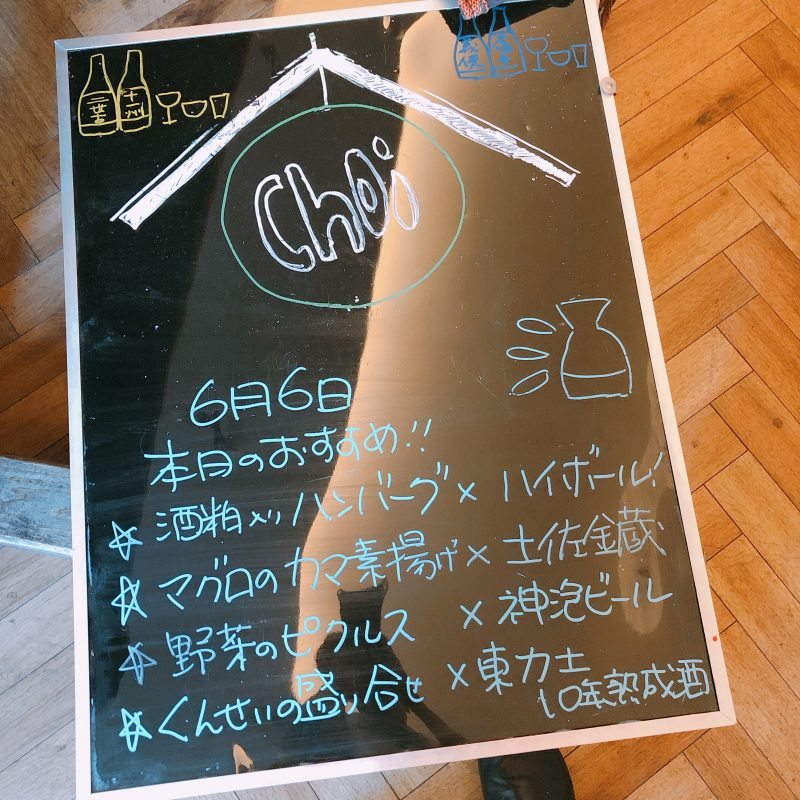 Choi
6月6日
本日のおすすめ!!
☆ 酒粕入りハンバーグ × ハイボール!
☆ マグロのカマ素揚げ × 土佐金蔵
☆ 野菜のピクルス × 神泡ビール
☆ くんせいの盛り合せ × 東力士
10年熟成酒